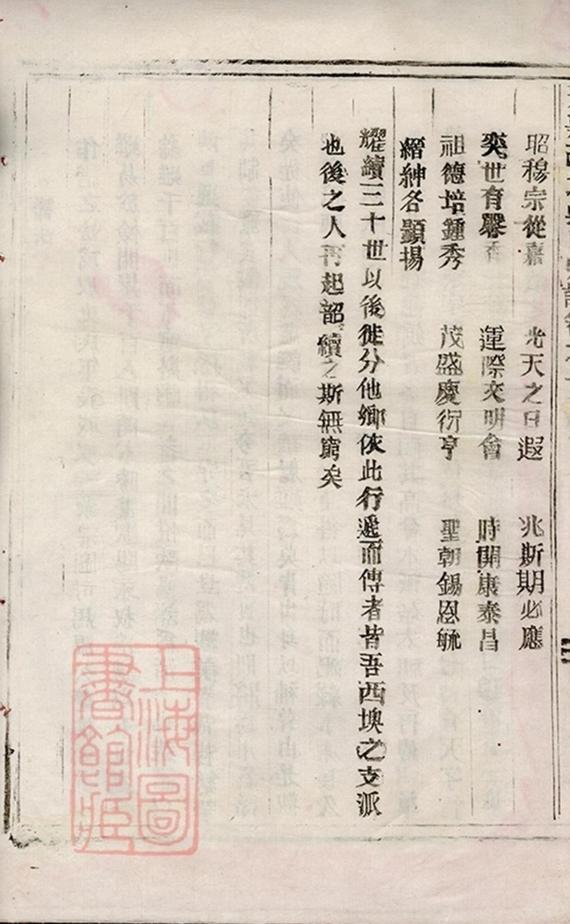 昭穆宗從嘉　光天之日遐　兆斯期必應
奕世有馨香　運際文明會　時開康泰昌
祖德培鍾秀　茂盛慶衍亨　聖朝錫恩毓
縉紳各顯揚
耀續三十世以後徙分他鄉依此行遞而傳者皆吾西塽之支派
也後之人再起韶續之斯無窮矣
上海圖
書館藏